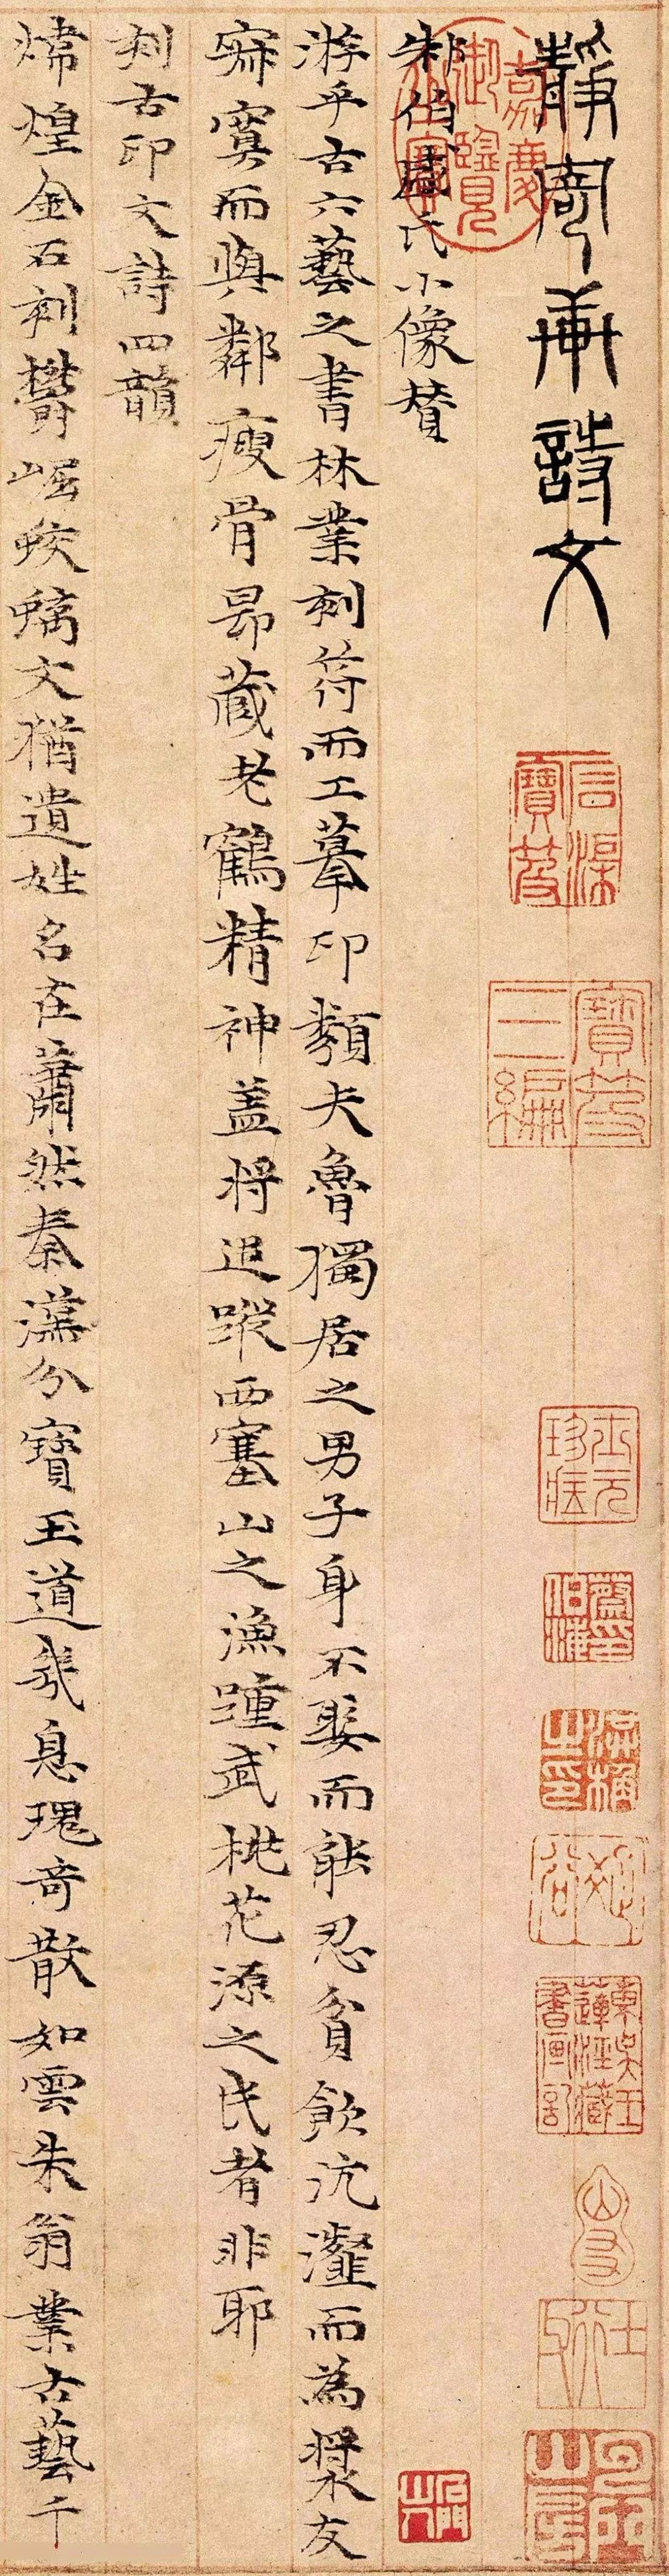 靜寄軒詩文
朱伯盛氏小像贊
游乎古六藝之書林業刻符而工摹印類夫魯獨居之男子身不娶而能忍貧飲沆瀣而為漿友
寂寞而與鄰瘦骨昻藏老鶴精神蓋將追蹤西塞山之漁踵武桃花源之民者非耶
刻古印文詩四韻
煒煌金石刻鬱崛蛟螭文猶遺姓名在蕭然秦漢分寶玉道幾息瑰奇散如雲朱翁業古藝千
嘉慶御覽之寶
寶笈三編